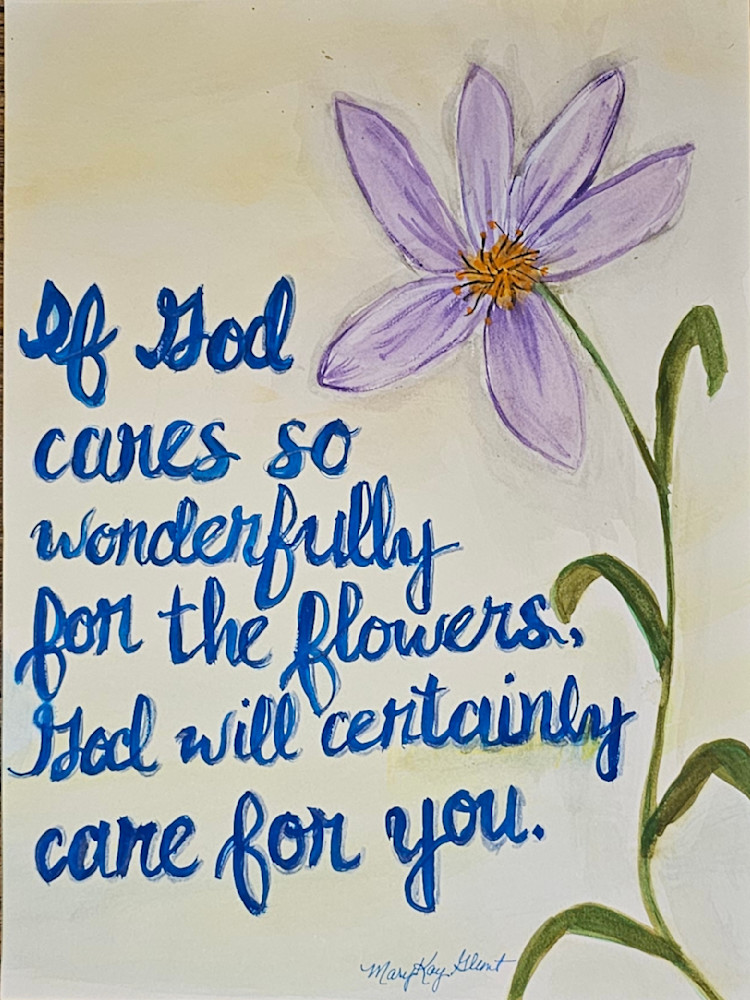 If God
cares so
wonderfully
for the flowers,
God will certainly
care for you.
Mary Kay Glunt